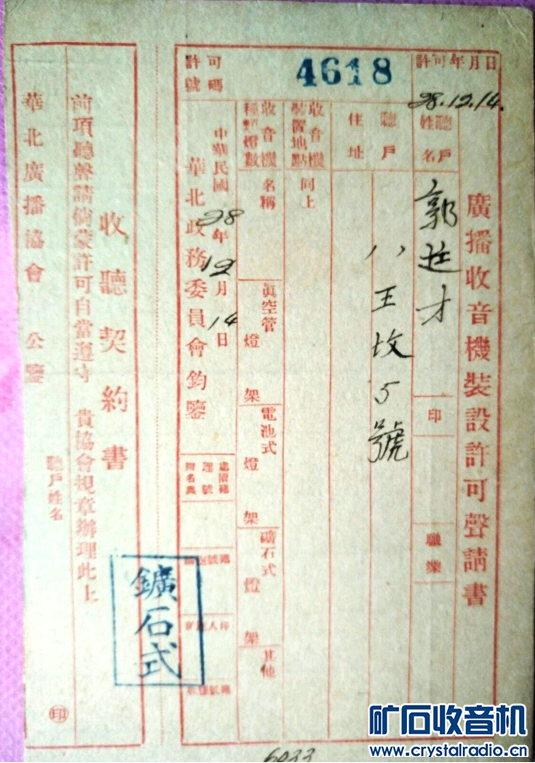 廣播收音機裝設許可聲請書
許可年月日
28.12.14.
聽戶姓名
郭廷才
印
職業
聽戶住址
八王坟5號
收音機裝置地點
同上
收音機種類燈數
名稱
真空管
燈
架
電池式
燈
架
礦石式
燈
架
其他
許可號碼
4618
中華民國28年12月14日
華北政務委員會鈞鑒
鑛石式
收聽契約書
前項聽聲請倘蒙許可自當遵守 貴協會規章辦理此上
華北廣播協會 公鑒
聽戶姓名
印
6033
矿石收音机
www.crystalradio.cn